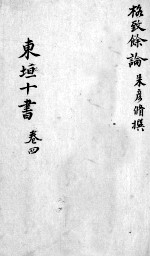 格致餘論 朱彥脩撰
東垣十書 卷四